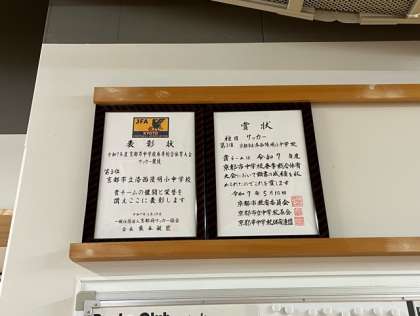 JFA
KYOTO
表彰状
令和7年度京都市中学校春季総合体育大会
サッカー競技
第3位
京都市立洛西陵明小中学校
貴チームの健闘と栄誉を
讃えここに表彰します
令和7年5月10日
一般社団法人京都府サッカー協会
会長
賞状
種目 サッカー
第3位 京都市立洛西陵明小中学校
貴チームは 令和7年度
京都市中学校春季総合体育
大会において頭書の成績を収
められたのでこれを賞します
令和7年5月10日
京都市教育委員会
京都市立中学校長会
京都市中学校体育連盟
Club